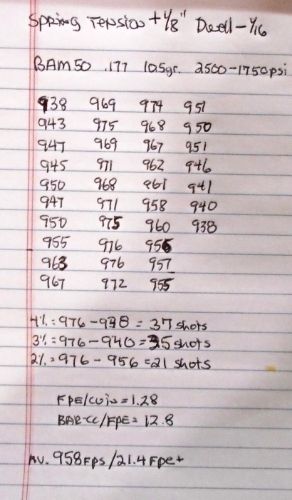 Spring Tension + 1/8" Dwell - 1/16
BAM50 .177 10.5gr. 2500-1750psi
938 969 974 951
943 975 968 950
947 969 967 951
945 971 962 946
950 968 961 941
947 971 958 940
950 975 960 938
955 976 956
963 976 957
967 972 955
4%: 976-938 = 37 shots
3%: 976-940 = 35 shots
2%: 976-956 = 21 shots
FPE/cuin = 1.28
BAR-CC/FPE = 12.8
Av. 958 Fps/21.4 Fpe+